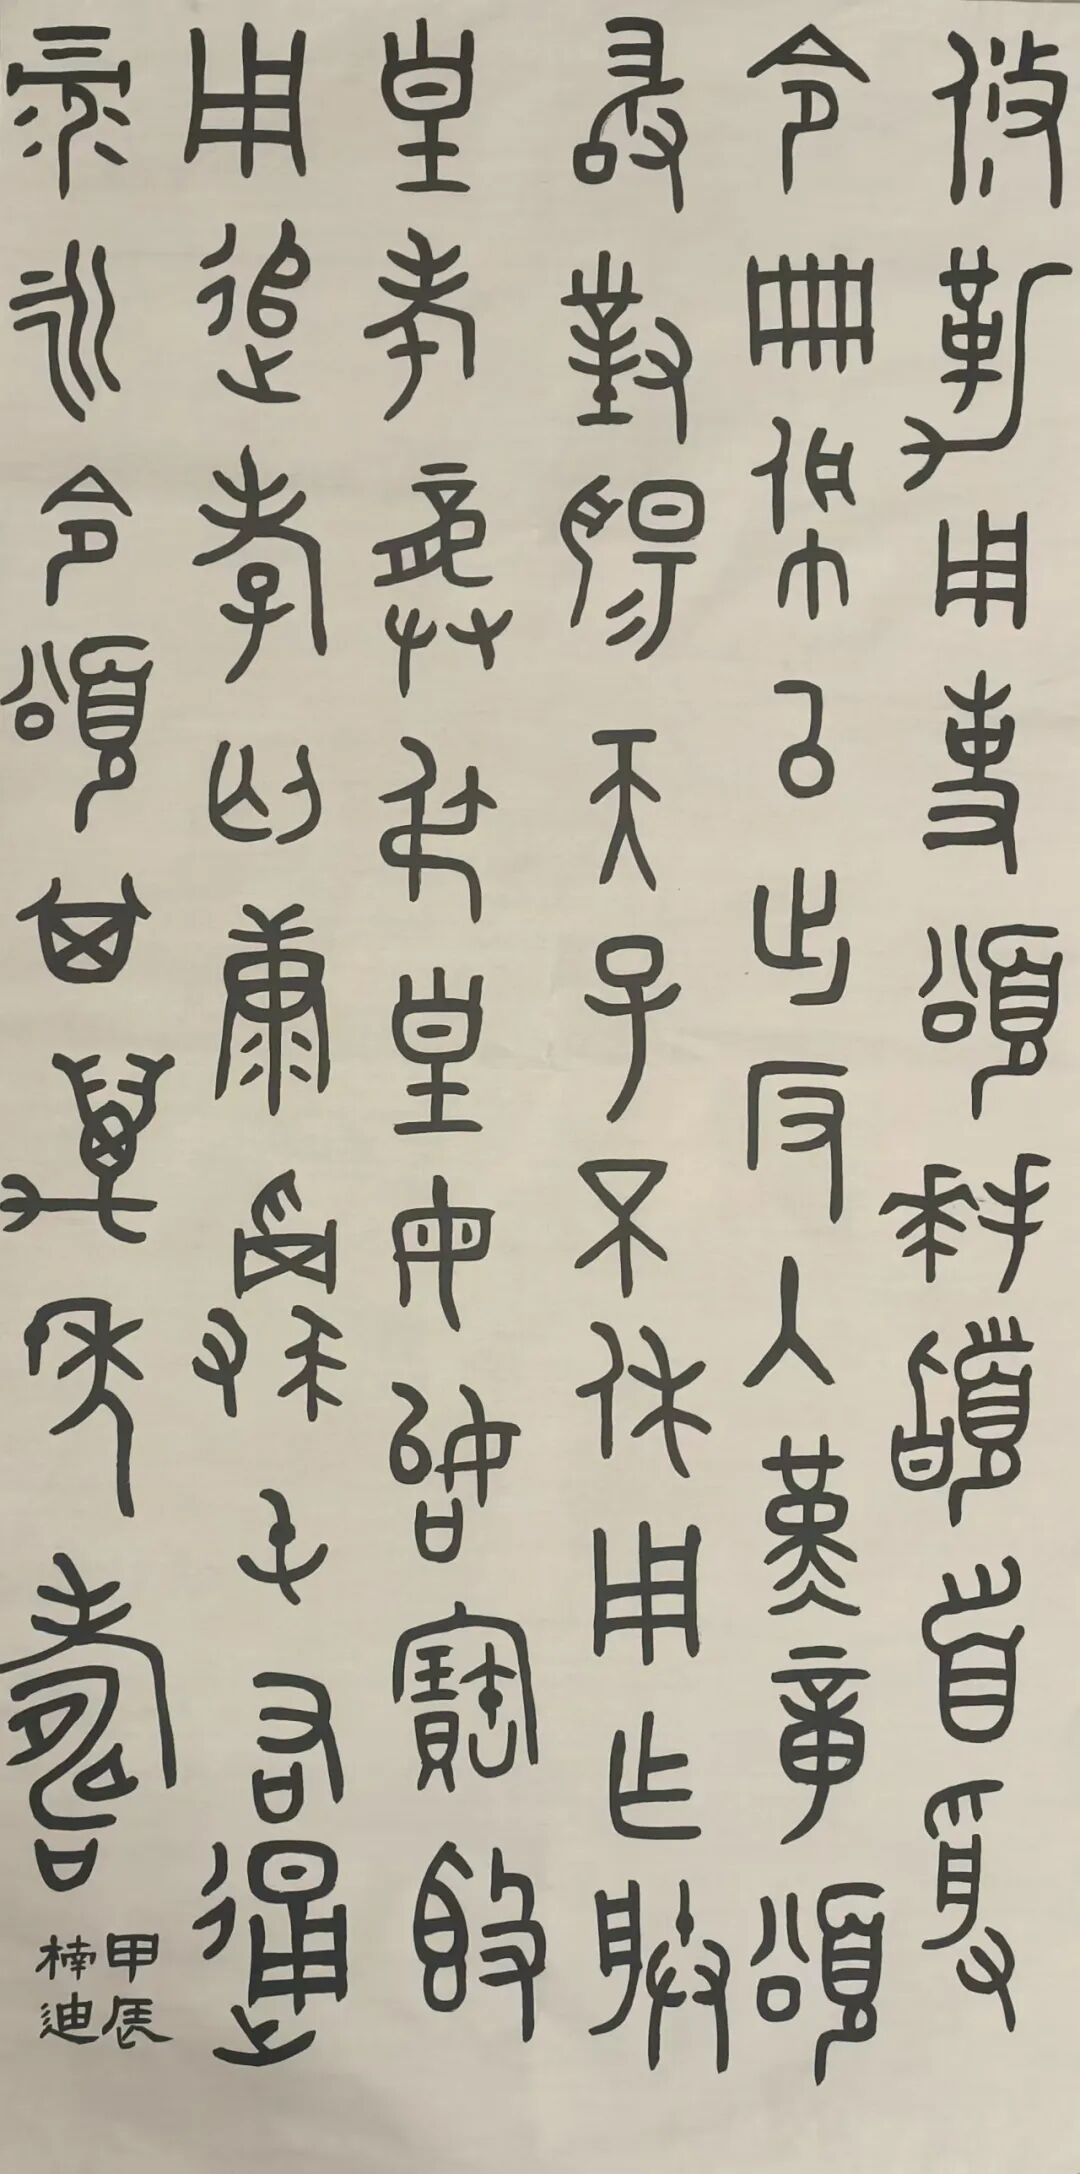 攸勒用事頌拜稽首受
令冊佩以出反入堇章頌
敢對揚天子不休用作朕
皇考龏叔皇母始寶簋
用追孝匄康屯右通
彔永令頌其萬年壽
甲辰
楠迪